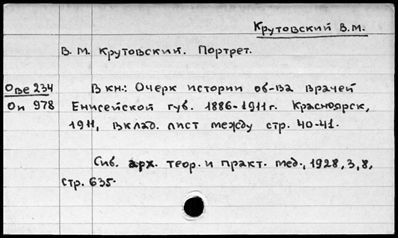 Крутовский В.М.
В. М. Крутовский. Портрет.
Ове 234
Ои 978
В кн.: Очерк истории об-ва врачей
Енисейской губ. 1886-1911г. Красноярск,
1911, вклад. лист между стр. 40-41.
Сиб. арх. теор. и практ. мед., 1928, 3, 8,
стр. 635.